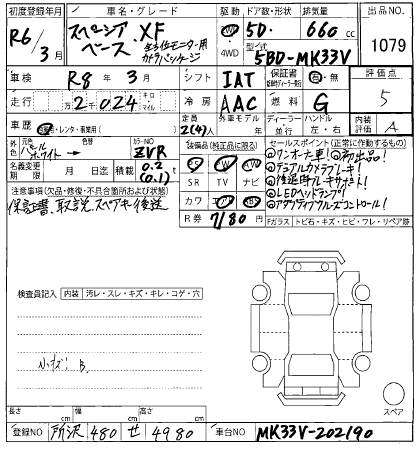 初度登録年月 車名・グレード 駆動 ドア数・形状 排気量 出品NO.
R6/3月 スペーシアベース XF 全方位モニター用カメラパッケージ 2WD 4WD 5D. 660cc 1079
型式 5BD-MK33V
車検 R8年3月 シフト IAT 保証書 有・無 評価点
走行 2千024 キロ マイル 冷房 AAC 燃料 G 5
車歴 自家用・レンタ・事業用( ) 定員 2(4)人 外車モデル 年 ディーラー 並行 ハンドル 左・右 内装評価 A
外色 元色 パールホワイト→ 色替 カラーNO ZVR 装備品(純正品に限る) セールスポイント(正常に作動するもの)
名義変更期限 月 日迄 積載 0.2(0.1)t PS AW PW
SR TV ナビ
カワ エアB ABS
R券 7180円
◎ワンオーナー車!◎初出品!
◎デュアルカメラブレーキ!
◎後退時ブレーキサポート!
◎LEDヘッドランプ!
◎アダプティブクルーズコントロール!
注意事項(欠品・修復・不具合箇所および状態)
保証書、取説、スペアキー後送
Fガラス トビ石・キズ・ヒビ・ワレ・リペア跡
検査員記入 内装 汚レ・スレ・キズ・キレ・コゲ・穴
小キズ B
スペア
長さ cm 幅 cm 高さ cm
登録NO 所沢 480 せ 4980 車台NO MK33V-202190